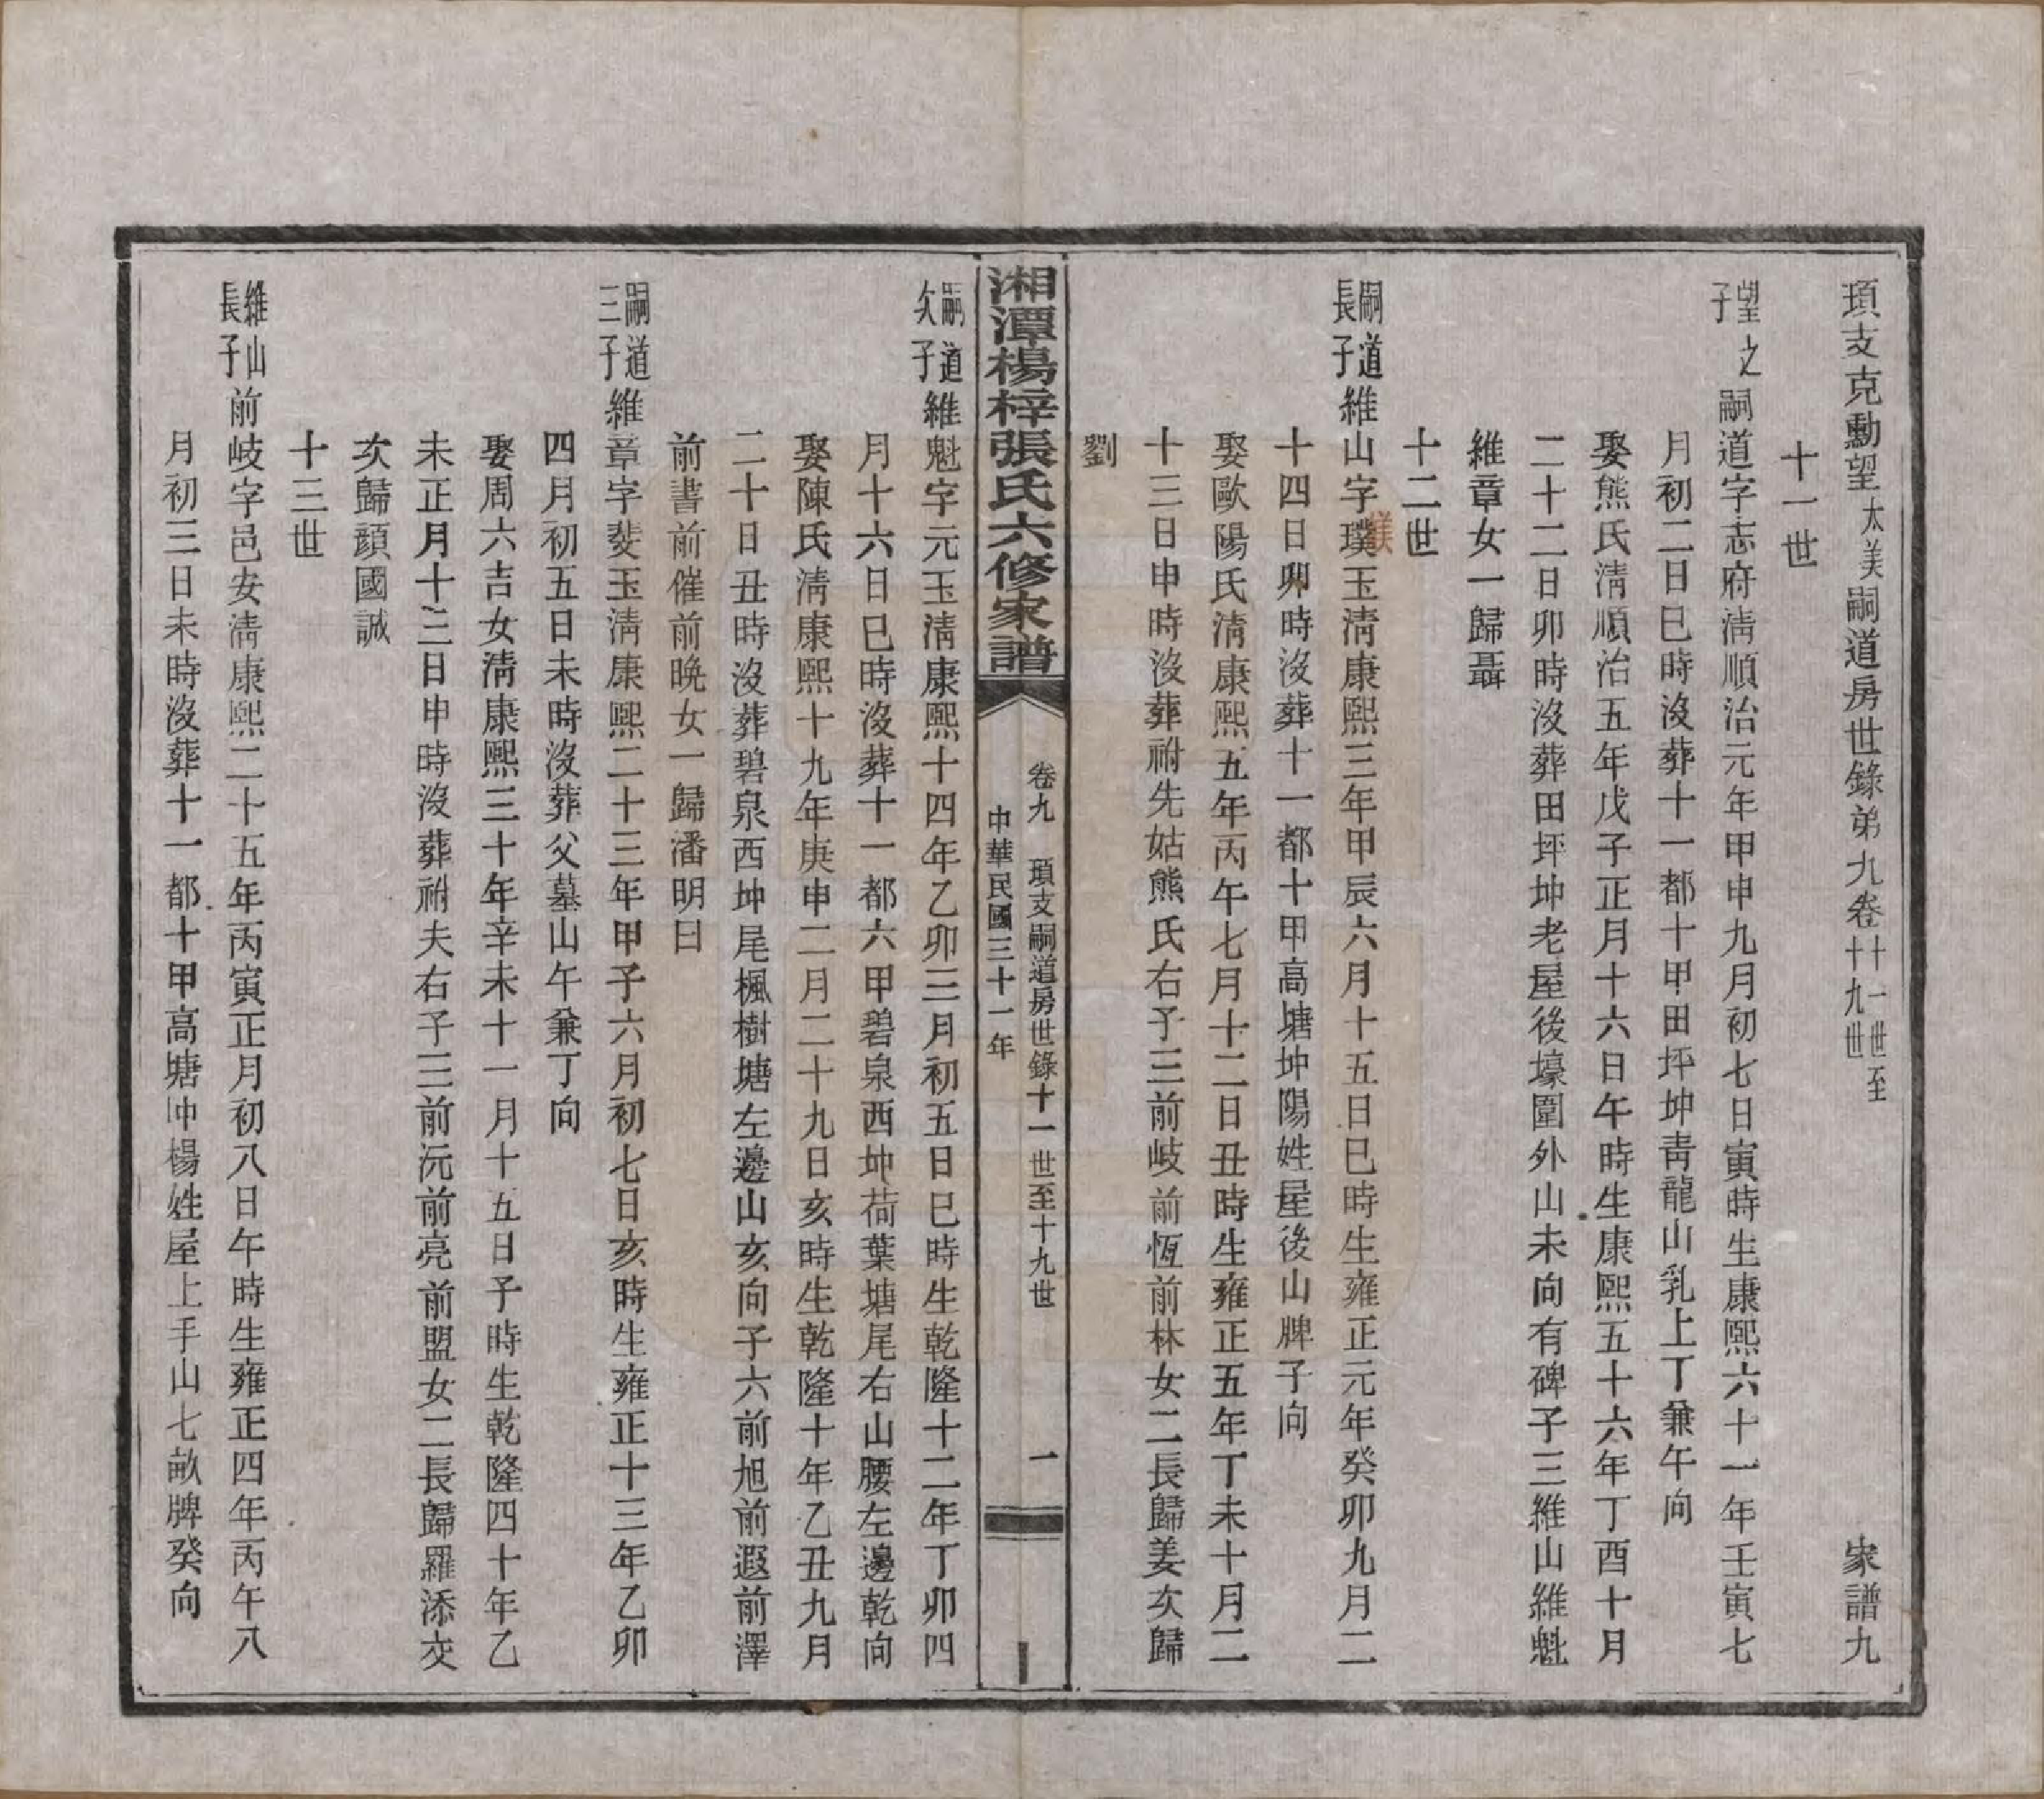 頊支克勳望太美嗣道房世錄弟九卷十一世至十九世 家譜九
十一世
望之子嗣道字志府淸順治元年甲申九月初七日寅時生康熙六十一年壬寅七
月初二日巳時沒葬十一都十甲田坪坤靑龍山乳上丁兼午向
娶熊氏淸順治五年戊子正月十六日午時生康熙五十六年丁酉十月
二十二日卯時沒葬田坪坤老屋後壕圍外山未向有碑子三維山維魁
維章女一歸聶
十二世
嗣道長子維山字璞玉淸康熙三年甲辰六月十五日巳時生雍正元年癸卯九月二
十四日卯時沒葬十一都十甲高塘坤陽姓屋後山牌子向
娶歐陽氏淸康熙五年丙午七月十二日丑時生雍正五年丁未十月二
十三日申時沒葬祔先姑熊氏右子三前岐前恆前林女二長歸姜次歸
劉
湘潭楊梓張氏六修家譜 卷九 頊支嗣道房世錄十一世至十九世 一
中華民國三十一年
嗣道次子維魁字元玉淸康熙十四年乙卯三月初五日巳時生乾隆十二年丁卯四
月十六日巳時沒葬十一都六甲碧泉西坤荷葉塘尾右山腰左邊乾向
娶陳氏淸康熙十九年庚申二月二十九日亥時生乾隆十年乙丑九月
二十日丑時沒葬碧泉西坤尾楓樹塘左邊山亥向子六前旭前遐前澤
前書前催前晚女一歸潘明曰
嗣道三子維章字斐玉淸康熙二十三年甲子六月初七日亥時生雍正十三年乙卯
四月初五日未時沒葬父墓山午兼丁向
娶周六吉女淸康熙三十年辛未十一月十五日子時生乾隆四十年乙
未正月十三日申時沒葬祔夫右子三前沅前亮前盟女二長歸羅添交
次歸顔國誠
十三世
維山長子前岐字邑安淸康熙二十五年丙寅正月初八日午時生雍正四年丙午八
月初三日未時沒葬十一都十甲高塘冲楊姓屋上手山七畝牌癸向